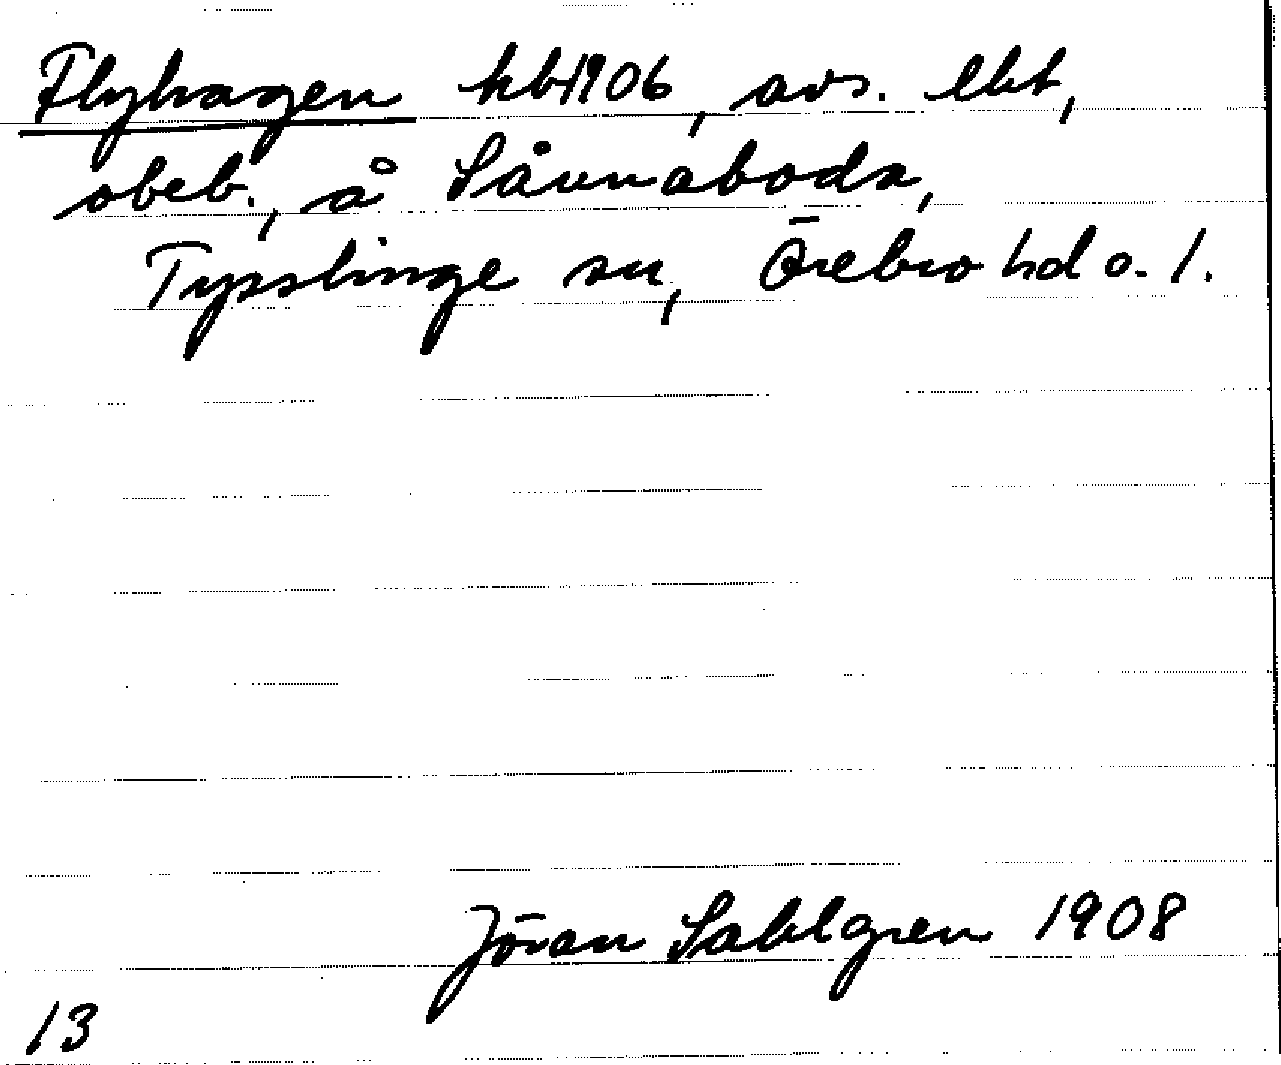 Flyhagen hb1906, avs. lht,
obeb., å Sånnaboda,
Tysslinge sn, Örebro hd o. l.
Jöran Sahlgren 1908
13